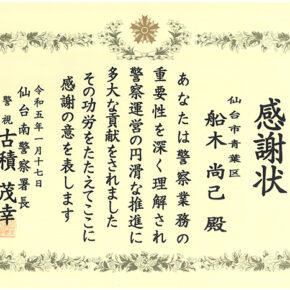 感謝状
仙台市青葉区
船木尚己 殿
あなたは警察業務の
重要性を深く理解され
警察運営の円滑な推進に
多大な貢献をされました
その功労をたたえてここに
感謝の意を表します
令和五年一月十七日
仙台南警察署長
警視 古積茂幸